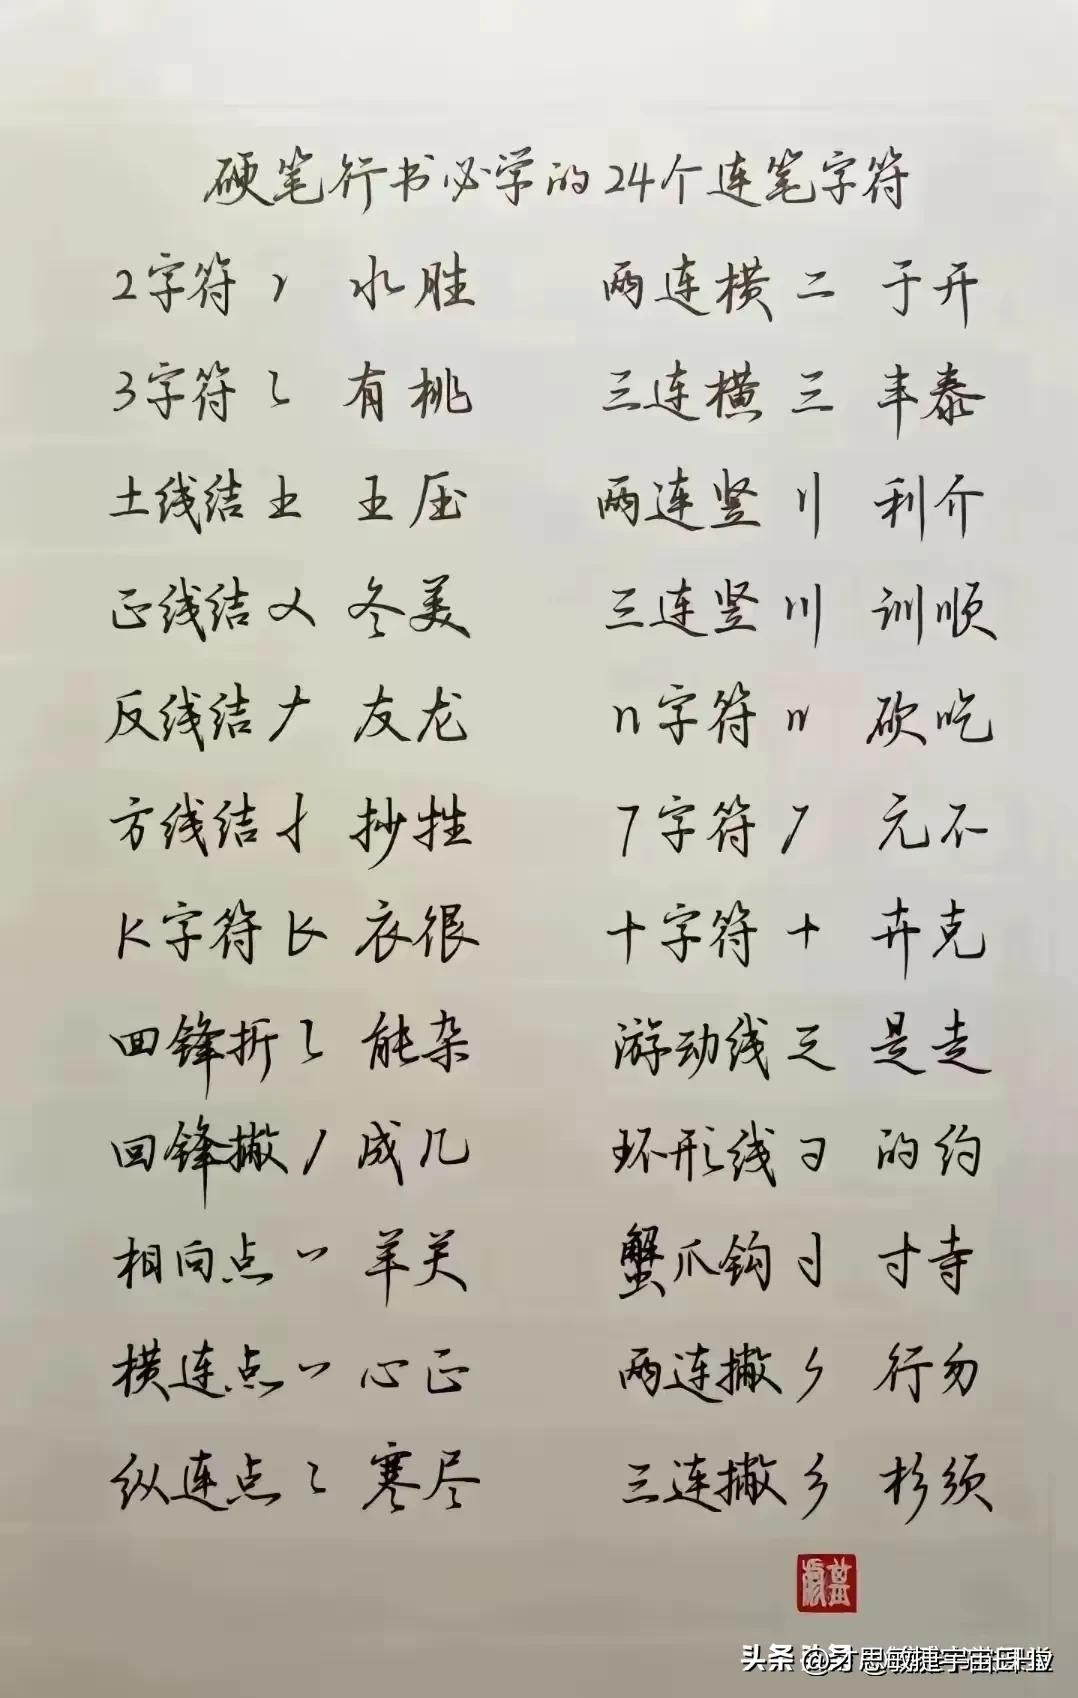 硬笔行书必学的24个连笔字符
2字符 冫 水胜
两连横 二 于开
3字符 有桃
三连横 三 丰泰
土线结 土 王压
两连竖 刂 利介
正线结 冬美
三连竖 川 训顺
反线结 𠂇 友龙
n字符 n 砍吃
方线结 扌 抄牲
7字符 7 元不
K字符 K 衣很
十字符 十 卉克
回锋折 能杂
游动线 是走
回锋撇 丿 成几
环形线 的约
相向点 丷 羊关
蟹爪钩 寸寺
横连点 丷 心正
两连撇 行勿
纵连点 寒尽
三连撇 彡 杉须
头条 @才思敏捷宇宙